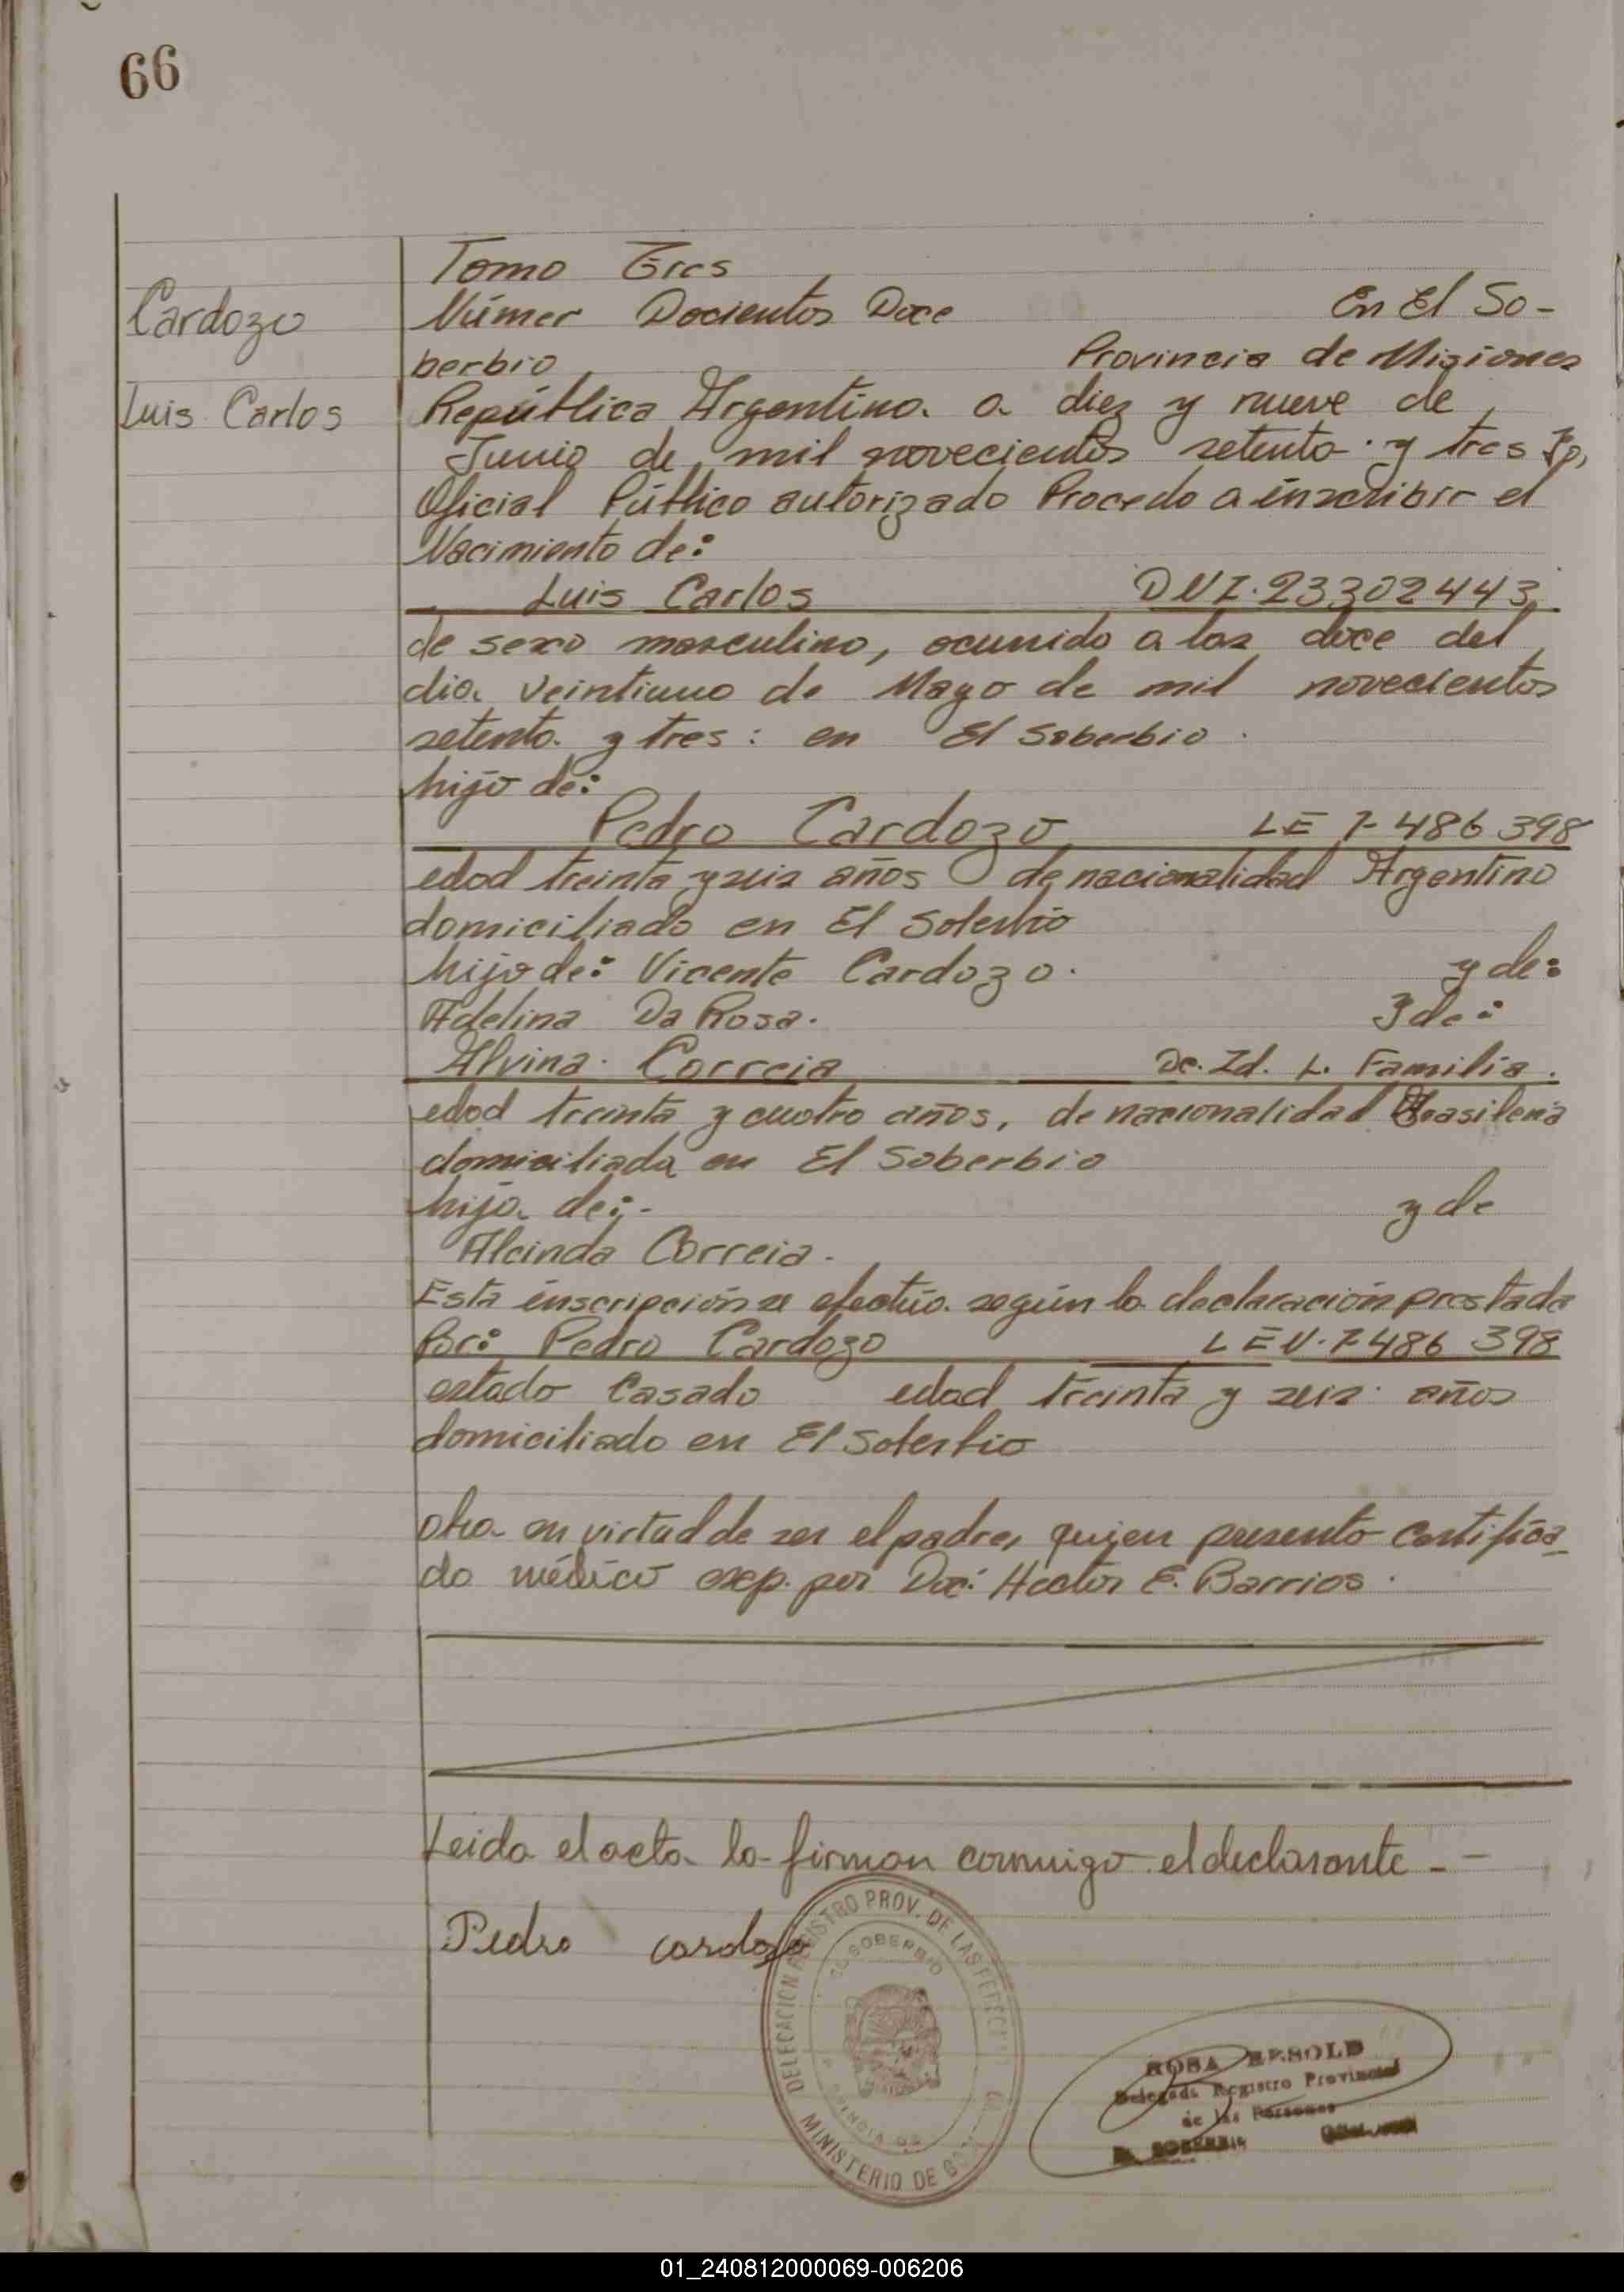 66
Cardozo
Luis Carlos
Tomo Tres
Númer Docientos Doce En El So-
berbio Provincia de Misiones
República Argentina. a diez y nueve de
Junio de mil novecientos setenta y tres Yo,
Oficial Público autorizado Procedo a inscribir el
Nacimiento de:
Luis Carlos DNI. 23302443
de sexo masculino, ocurrido a las doce del
dia veintiuno de Mayo de mil novecientos
setenta y tres: en El Soberbio.
hijo de:
Pedro Cardozo LE 7-486 398
edad treinta y seis años de nacionalidad Argentino
domiciliado en El Soberbio
hijo de: Vicente Cardozo. y de:
Adelina Da Rosa. y de:
Alvina Correia Dc. Id. L. Familia.
edad treinta y cuatro años, de nacionalidad Brasilena
domiciliada en El Soberbio
hija de:- y de
Alcinda Correia.
Esta inscripción se efectúa según la declaración prestada
Por: Pedro Cardozo L E N. 7486 398
estado Casado edad treinta y seis años
domiciliado en El Soberbio
obra en virtud de ser el padre, quien presento certifica-
do médico exp. por Doc: Hector E. Barrios.
Leida el acta la firman conmigo el declarante - -
Pedro cardozo
DELEGACION REGISTRO PROV. DE LAS PERSO
EL SOBERBIO
MINISTERIO DE GO
ROSA RESOLD
Delegada Registro Provincial
de las Personas
EL SOBERBIO
01_240812000069-006206